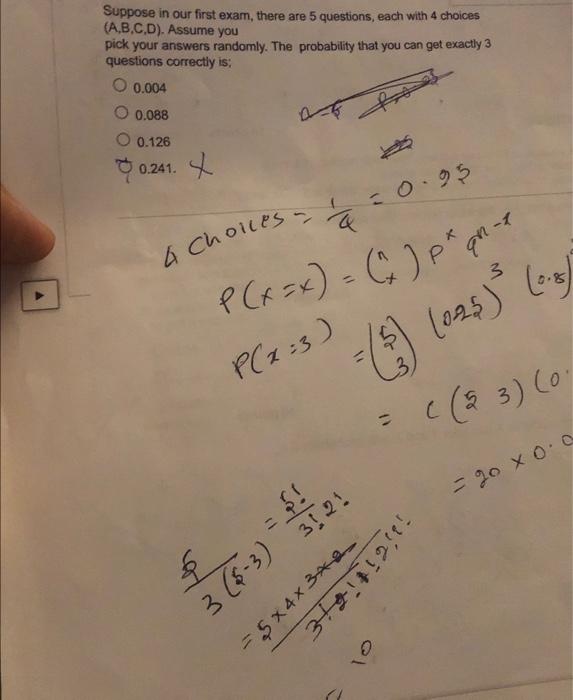 Suppose in our first exam, there are 5 questions, each with 4 choices
(A,B,C,D). Assume you
pick your answers randomly. The probability that you can get exactly 3
questions correctly is;
0.004
0.088
0.126
0.241. X
4 choices = 1/4 = 0.25
P(x=x) = (n x) p^x q^n-x
P(x=3) = (5 3) (0.25)^3 (0.8)
= C(5 3) (0.
= 20 x 0.0
5 / 3(5-3) = 5! / 3! 2!
= 5x4x3x2
10